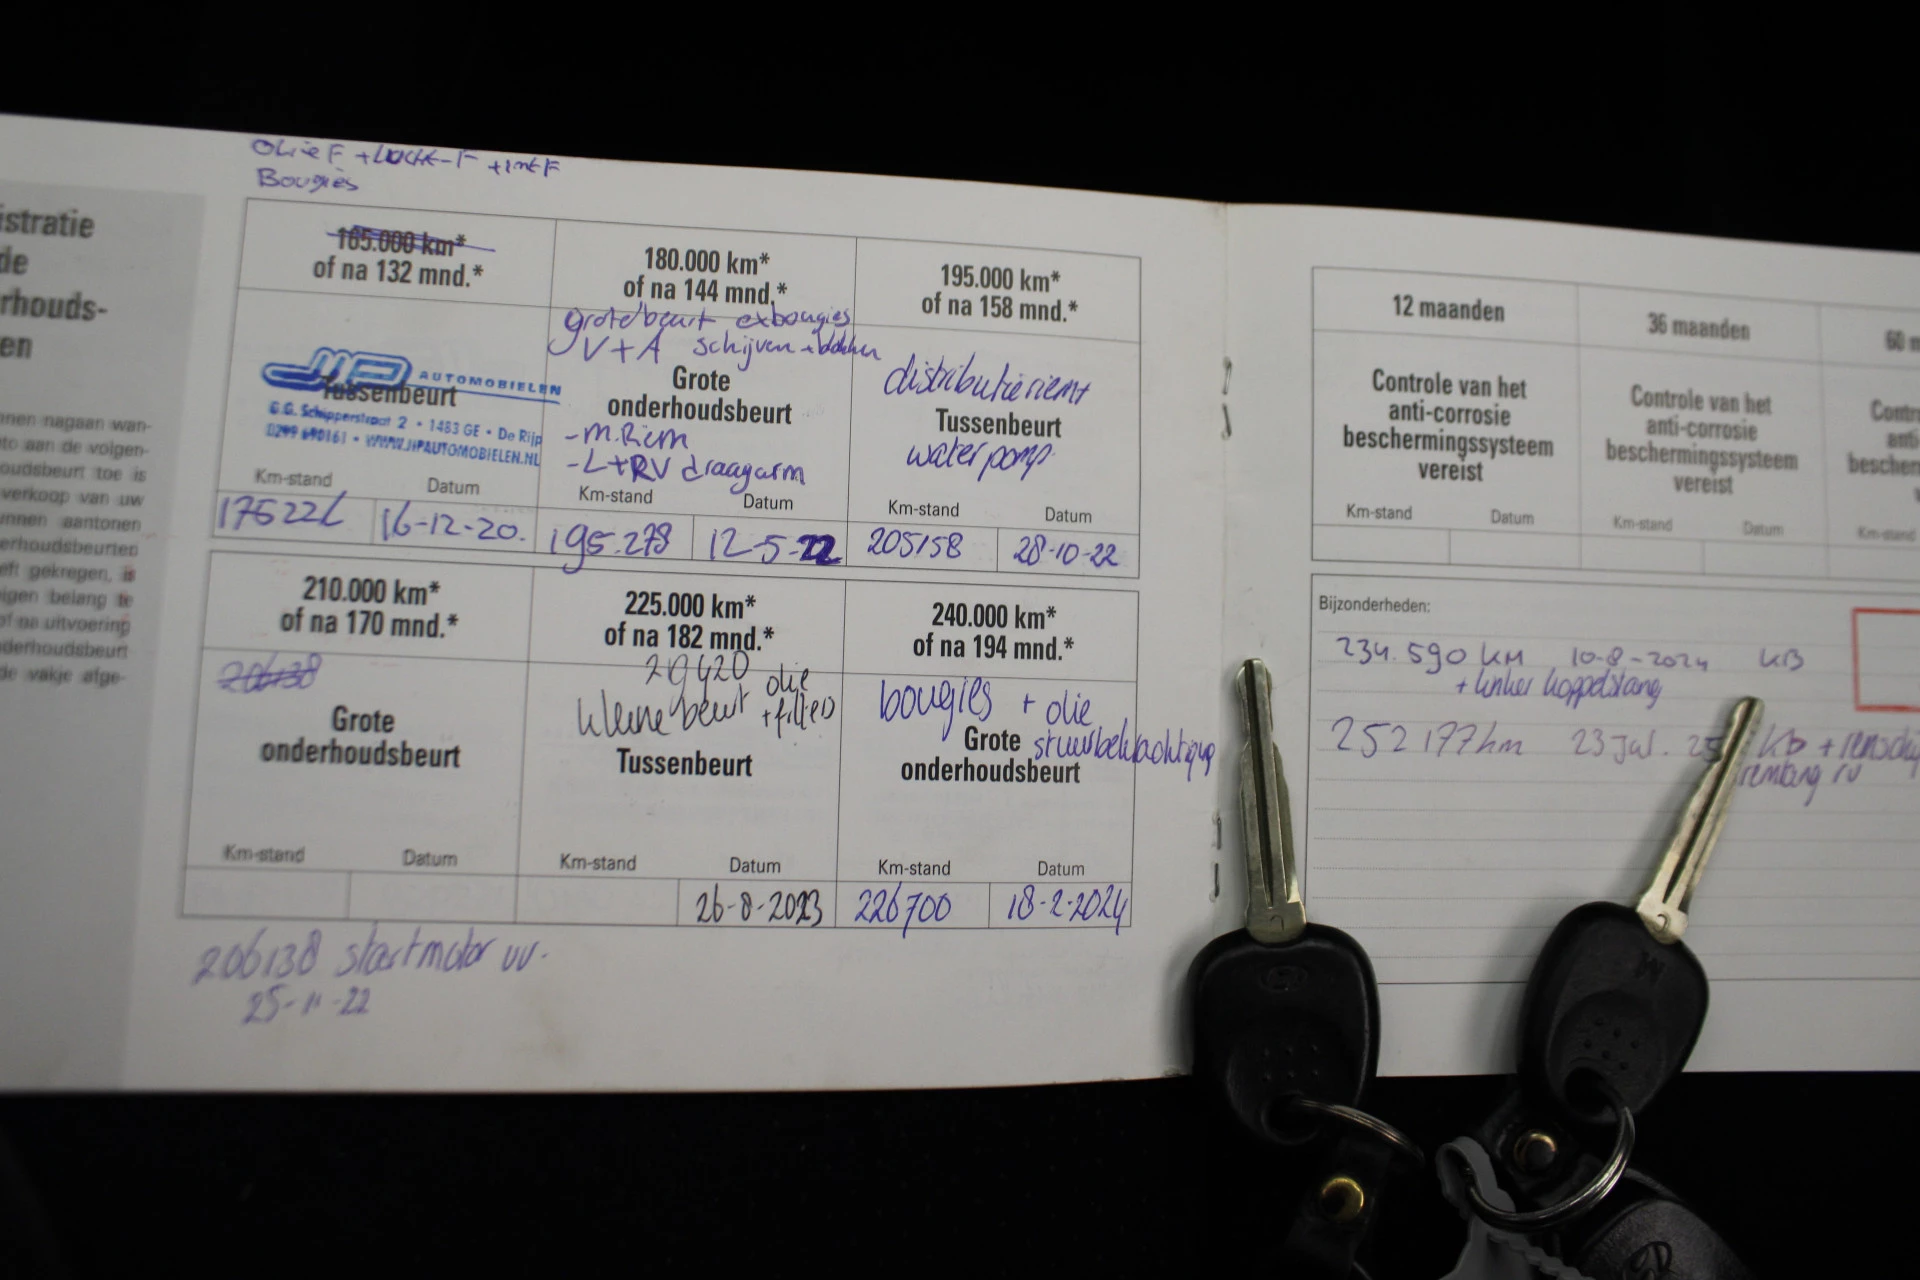 OLie F + Lucht-F + intF
Bougies
istratie
de
rhouds-
en
nnen nagaan wan-
to aan de volgen-
oudsbeurt toe is
verkoop van uw
nnen aantonen
erhoudsbeurten
eft gekregen, is
igen belang te
of na uitvoering
derhoudsbeurt
de vakje afge-
165.000 km*
of na 132 mnd.*
JIP AUTOMOBIELEN
Tussenbeurt
G.G. Schipperstraat 2 • 1483 GE • De Rijp
0299 690161 • WWW.JIPAUTOMOBIELEN.NL
Km-stand Datum
16-12-20.
180.000 km*
of na 144 mnd.*
grote beurt ex bougies
V+A schijven + blokken
Grote
onderhoudsbeurt
- M.Riem
- L+RV draagarm
Km-stand Datum
195.278 12-5-22
195.000 km*
of na 158 mnd.*
distributieriem
Tussenbeurt
waterpomp
Km-stand Datum
205158 28-10-22
210.000 km*
of na 170 mnd.*
206138
Grote
onderhoudsbeurt
Km-stand Datum
225.000 km*
of na 182 mnd.*
kleine beurt olie
+ filters
Tussenbeurt
Km-stand Datum
26-8-2023
240.000 km*
of na 194 mnd.*
bougies + olie
Grote stuurbekrachtiging
onderhoudsbeurt
Km-stand Datum
226700 18-2-2024
206138 startmotor vv.
25-11-22
12 maanden
Controle van het
anti-corrosie
beschermingssysteem
vereist
Km-stand Datum
36 maanden
Controle van het
anti-corrosie
beschermingssysteem
vereist
Km-stand Datum
60 m
Contro
anti
bescher
Km-stand
Bijzonderheden:
234.590 KM 10-8-2024 KB
+ linker koppelstang
252177km 23 Jul. 25 kb + remschij
remtang rv